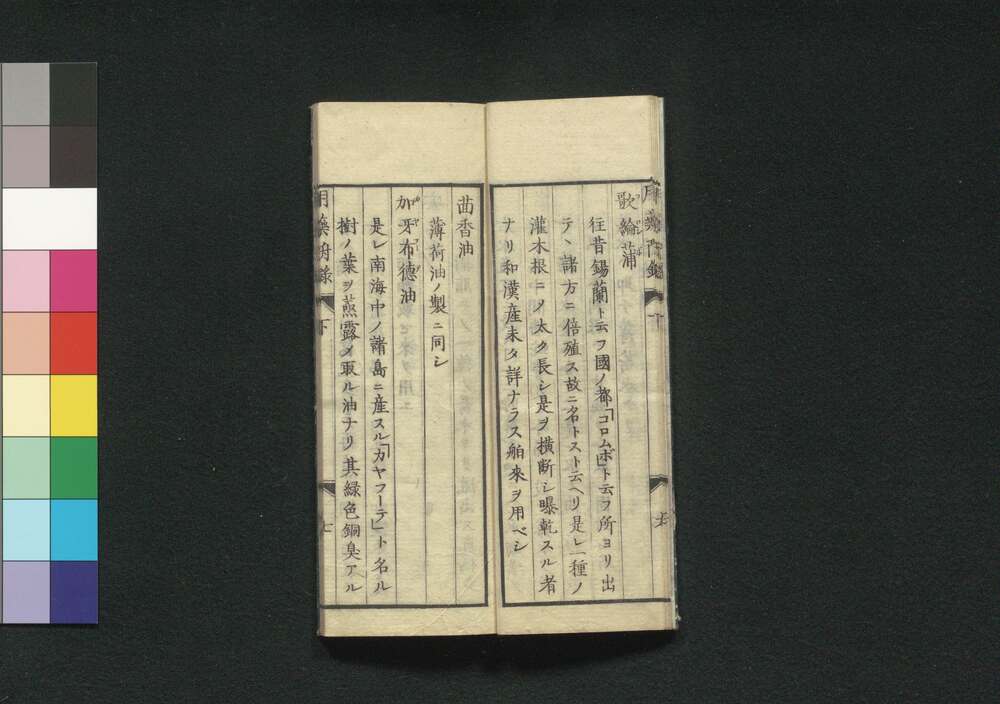 歌綸蒲
往昔錫蘭ト云フ國ノ都「コロムボ」ト云フ所ヨリ出
テヽ諸方ニ倍殖ス故ニ名トスト云ヘリ是レ一種ノ
灌木根ニメ太ク長シ是ヲ横断シ曝乾スル者
ナリ和漢産未タ詳ナラス舶來ヲ用ベシ
茴香油
薄荷油ノ製ニ同シ
加牙布徳油
是レ南海中ノ諸島ニ産スル「カヤフーテ」ト名ル
樹ノ葉ヲ蒸露メ取ル油ナリ其緑色銅臭アル
下
七